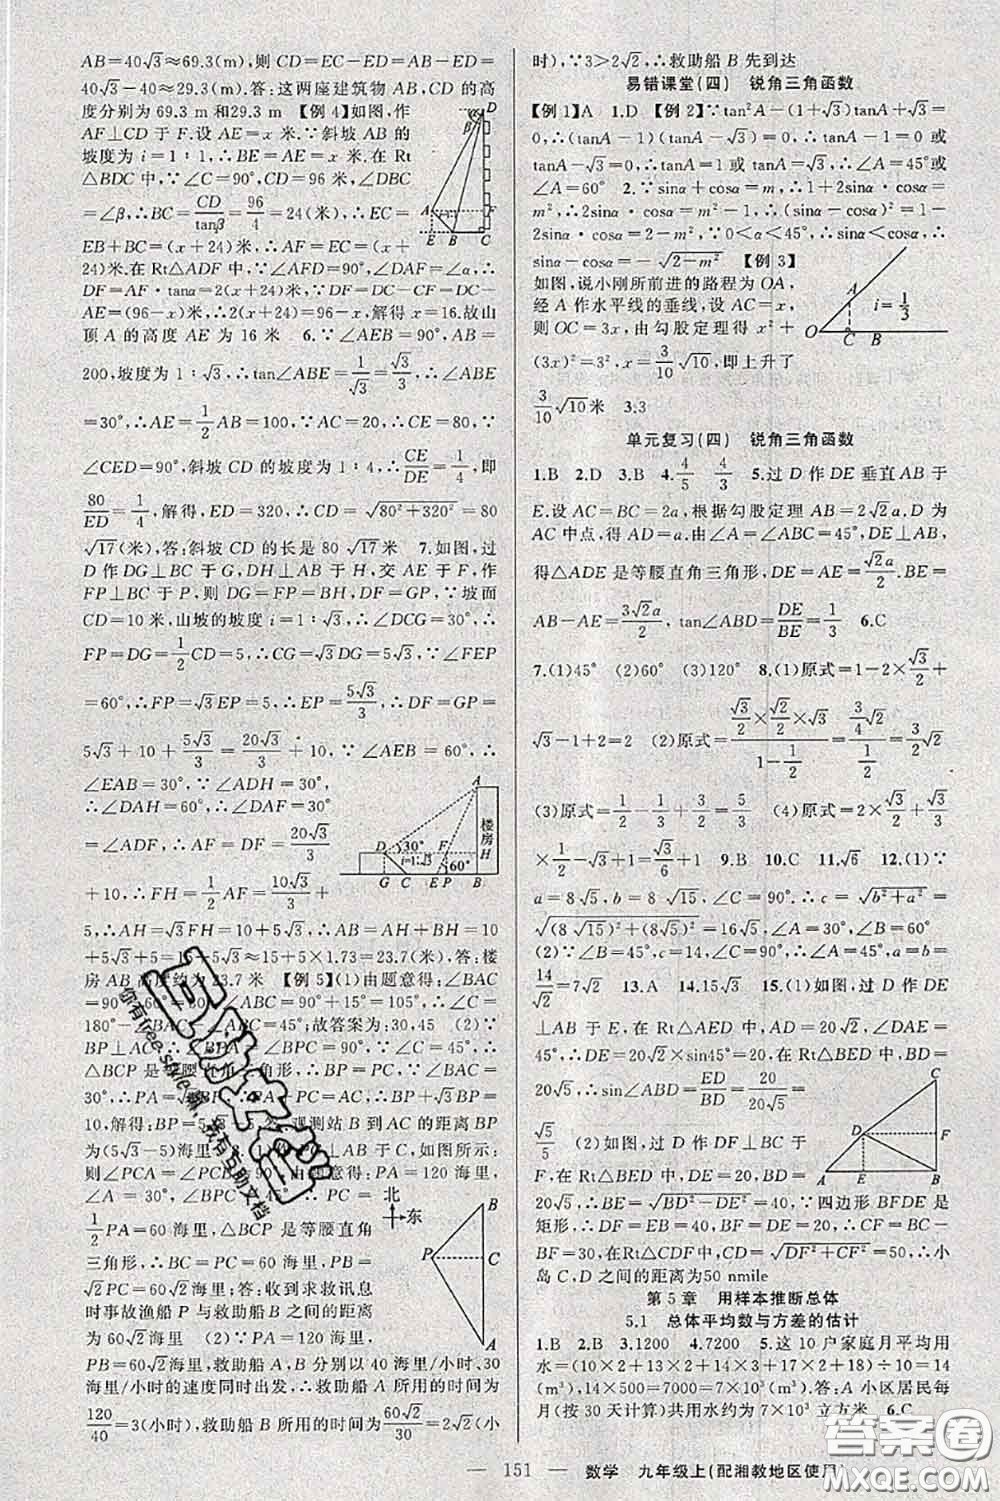 AB=40√3≈69.3(m),则 CD=EC-ED=AB-ED=
40√3-40≈29.3(m).答:这两座建筑物 AB,CD 的高
度分别为 69.3 m和29.3 m 【例 4】如图,作
AF⊥CD 于 F.设 AE=x 米.∵斜坡 AB 的
坡度为 i=1∶1,∴BE=AE=x 米.在 Rt
△BDC 中,∵∠C=90°,CD=96 米,∠DBC
=∠β,∴BC=CD/tanβ=96/4=24(米),∴EC=
EB+BC=(x+24)米,∴AF=EC=(x+
24)米.在 Rt△ADF 中,∵∠AFD=90°,∠DAF=∠α,∴
DF=AF·tanα=2(x+24)米.∵DF=DC-CF=DC-
AE=(96-x)米,∴2(x+24)=96-x,解得 x=16.故山
顶 A 的高度 AE 为 16 米 6.∵∠AEB=90°,AB=
200,坡度为 1∶√3,∴tan∠ABE=1/√3=√3/3,∴∠ABE
=30°,∴AE=1/2AB=100.∵AC=20,∴CE=80.∵
∠CED=90°,斜坡 CD 的坡度为 1∶4,∴CE/DE=1/4,即
80/ED=1/4,解得,ED=320,∴CD=√(80²+320²)=80
√17(米),答:斜坡 CD 的长是 80 √17米 7.如图,过
D 作 DG⊥BC 于 G,DH⊥AB 于 H,交 AE 于 F,作
FP⊥BC 于 P,则 DG=FP=BH,DF=GP.∵坡面
CD=10 米,山坡的坡度 i=1∶√3,∴∠DCG=30°,∴
FP=DG=1/2CD=5,∴CG=√3DG=5√3.∵∠FEP
=60°,∴FP=√3EP=5,∴EP=5√3/3,∴DF=GP=
5√3+10+5√3/3=20√3/3+10.∵∠AEB=60°,∴
∠EAB=30°,∵∠ADH=30°,
∴∠DAH=60°,∴∠DAF=30°
=∠ADF,∴AF=DF=20√3/3
+10,∴FH=1/2AF=10√3/3+
5,∴AH=√3FH=10+5√3,∴AB=AH+BH=10+
5√3+5=15+5√3≈15+5×1.73=23.7(米),答:楼
房 AB 高度约为 23.7 米 【例 5】(1)由题意得:∠BAC
=90°-60°=30°,∠ABC=90°+15°=105°,∴∠C=
180°-∠BAC-∠ABC=45°;故答案为:30,45 (2)∵
BP⊥AC,∴∠BPA=∠BPC=90°,∵∠C=45°,∴
△BCP 是等腰直角三角形,∴BP=PC,
∵∠BAC=30°,∴PA=√3BP,∵PA+PC=AC,∴BP+√3BP=
10,解得:BP=5√3-5,答:观测站 B 到 AC 的距离 BP
为(5√3-5)海里 8.(1)作 PC⊥AB 于 C,如图所示:
则∠PCA=∠PCB=90°,由题意得:PA=120 海里,
1/2PA=60 海里,△BCP 是等腰直角
三角形,∴BC=PC=60 海里,PB=
√2PC=60√2 海里;答:收到求救讯息
时事故渔船 P 与救助船 B 之间的距离
为 60√2 海里 (2)∵PA=120 海里,
PB=60√2 海里,救助船 A,B 分别以 40 海里/小时、30
海里/小时的速度同时出发,∴救助船 A 所用的时间为
120/40=3(小时),救助船 B 所用的时间为60√2/30=2√2(小
时),∵3>2√2,∴救助船 B 先到达
易错课堂(四) 锐角三角函数
【例 1】A 1.D 【例 2】∵tan²A-(1+√3)tanA+√3=
0,∴(tanA-1)(tanA-√3)=0,∴tanA-1=0或
tanA-√3=0,∴tanA=1或 tanA=√3,∴∠A=45°或
∠A=60° 2.∵sinα+cosα=m,∴1+2sinα·cosα=
m²,∴2sinα·cosα=m²-1,∴(sinα-cosα)²=1-
2sinα·cosα=2-m².∵0<α<45°,∴sinα<cosα,∴
sinα-cosα=-√(2-m²) 【例 3】
如图,设小刚所前进的路程为 OA,
经 A 作水平线的垂线,设 AC=x,
则 OC=3x,由勾股定理得 x²+
(3x)²=3²,x=3/10√10,即上升了
3/10√10米 3.3
单元复习(四) 锐角三角函数
1.B 2.D 3.B 4.4/5 4/3 5.过 D 作 DE 垂直 AB 于
E.设 AC=BC=2a,根据勾股定理 AB=2√2a.D 为
AC 中点,得 AD=a.由∠A=∠ABC=45°,DE⊥AB,
得△ADE 是等腰直角三角形,DE=AE=√2a/2.BE=
AB-AE=3√2a/2, tan∠ABD=DE/BE=1/3 6.C
7.(1)45° (2)60° (3)120° 8.(1)原式=1-2×√3/2+
√3-1+2=2 (2)原式=(√3/2×√2/2×√3)/(1-1/2)=(3/4√2)/(1/2)=3/2√2
(3)原式=1/2-1/2+5/3=5/3 (4)原式=2×√3/2+√3/3
×1/2-√3=√3/6 9.B 10.C 11.√6 12.(1)∵
a=8√5,b=8 √15,∠C=90°,∴c=√(b²+a²)=
√((8 √15)²+(8√5)²)=16√5,∠A=30°,∠B=60°
(2)∵∠B=45°,∠C=90°,∴∠A=45°,∴a=b=
14/√2=7√2 13.A 14.15√3 15.(1)如图,过 D 作 DE
⊥AB 于 E,在 Rt△AED 中,AD=20√2,∠DAE=
45°,∴DE=20√2×sin45°=20.在Rt△BED 中,BD=
20√5,∴sin∠ABD=ED/BD=20/20√5=
√5/5 (2)如图,过 D 作 DF⊥BC 于
F,在 Rt△BED 中,DE=20,BD=
20√5,∴BE=√(BD²-DE²)=40.∵四边形 BFDE 是
矩形,∴DF=EB=40,BF=DE=20,∴CF=BC-
BF=30,在Rt△CDF中,CD=√(DF²+CF²)=50,∴小
岛 C,D 之间的距离为50 nmile
第 5 章 用样本推断总体
5.1 总体平均数与方差的估计
1.B 2.B 3.1200 4.7200 5.这 10 户家庭月平均用
水=(10×2+13×2+14×3+17×2+18)÷10=
14(m³),14×500=7000=7×10³(m³).答:A 小区居民每
月(按 30 天计算)共用水约为 7×10³ 立方米 6.C
A D E B C
A i=1/3 O C B
A D 30° F H i=1∶√3 60° G C E P B 楼房
北 东 A P C B
C D F A E B
你有free style嘛,我有互助文档
— 151 — 数学 九年级上(配湘教地区使用)
答案圈
MXQE.COM